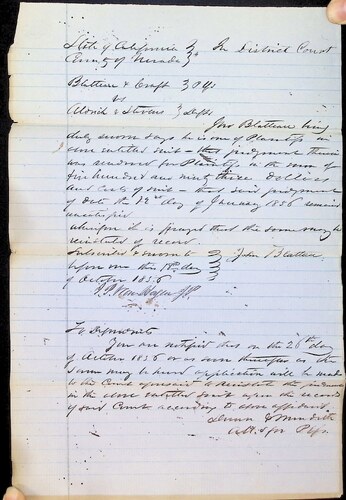 State of California } In District Court
County of Nevada }
Blattau & Ernst } Plfs
vs
& Stevens } Defts
Jno Blattau being
duly sworn says he is one of Plaintiffs in
above entitled suit - that judgment therein
was rendered for Plaintiffs in the sum of
five hundred and ninety three Dollars
and Costs of suit - that said judgment
of date the 12th day of January 1856 remains
unsatisfied
wherefore it is prayed that the same may be
reinstated of record.
Subscribed & sworn to } John Blattau
before me this 18th day
of October 1856
J.P.
To Defendants
You are notified that on the 26th day
of October 1856 or as soon thereafter as the
same may be heard application will be made
to the Court aforesaid to Reinstate the judgment
in the above entitled suit upon the records
of said Court according to above affidavit
& Meredith
Atts for Plfs